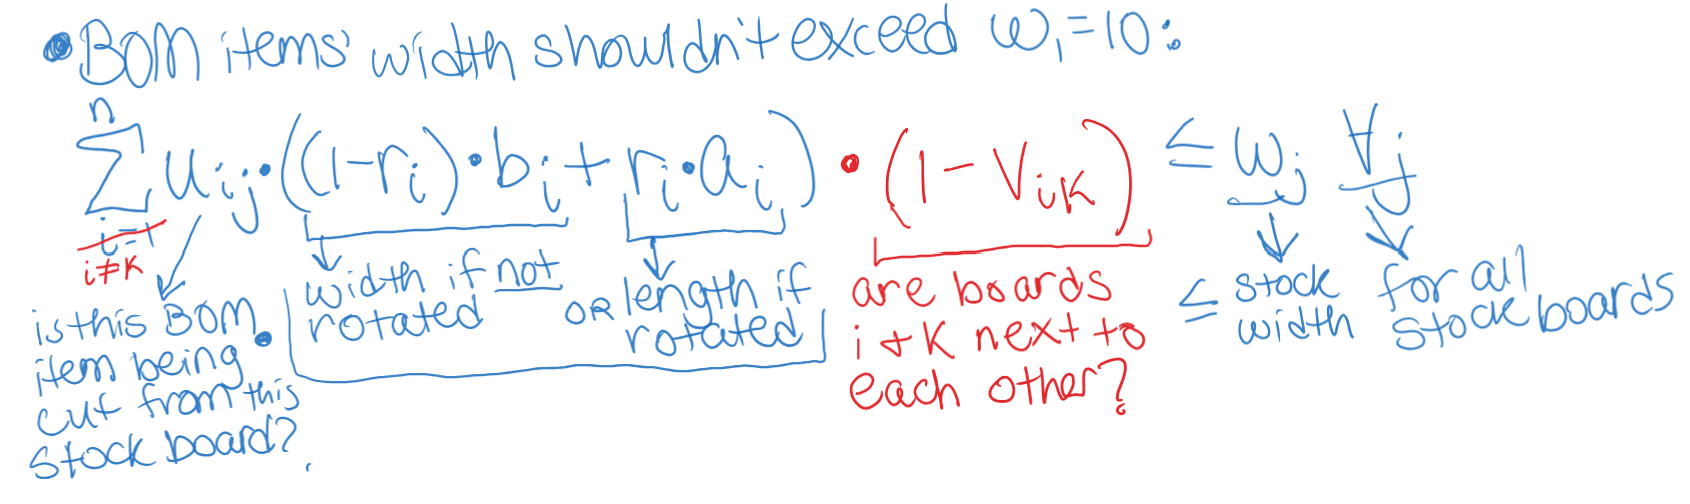 • BOM items' width shouldn't exceed w₁=10:
n
∑ uᵢⱼ•((1-rᵢ)•bᵢ+rᵢ•aᵢ) • (1-Vᵢₖ) ≤ wⱼ ∀ⱼ
i=1
i≠k
is this BOM item being cut from this stock board?
•
width if not rotated
OR length if rotated
are boards i + k next to each other?
≤ stock width
for all stock boards